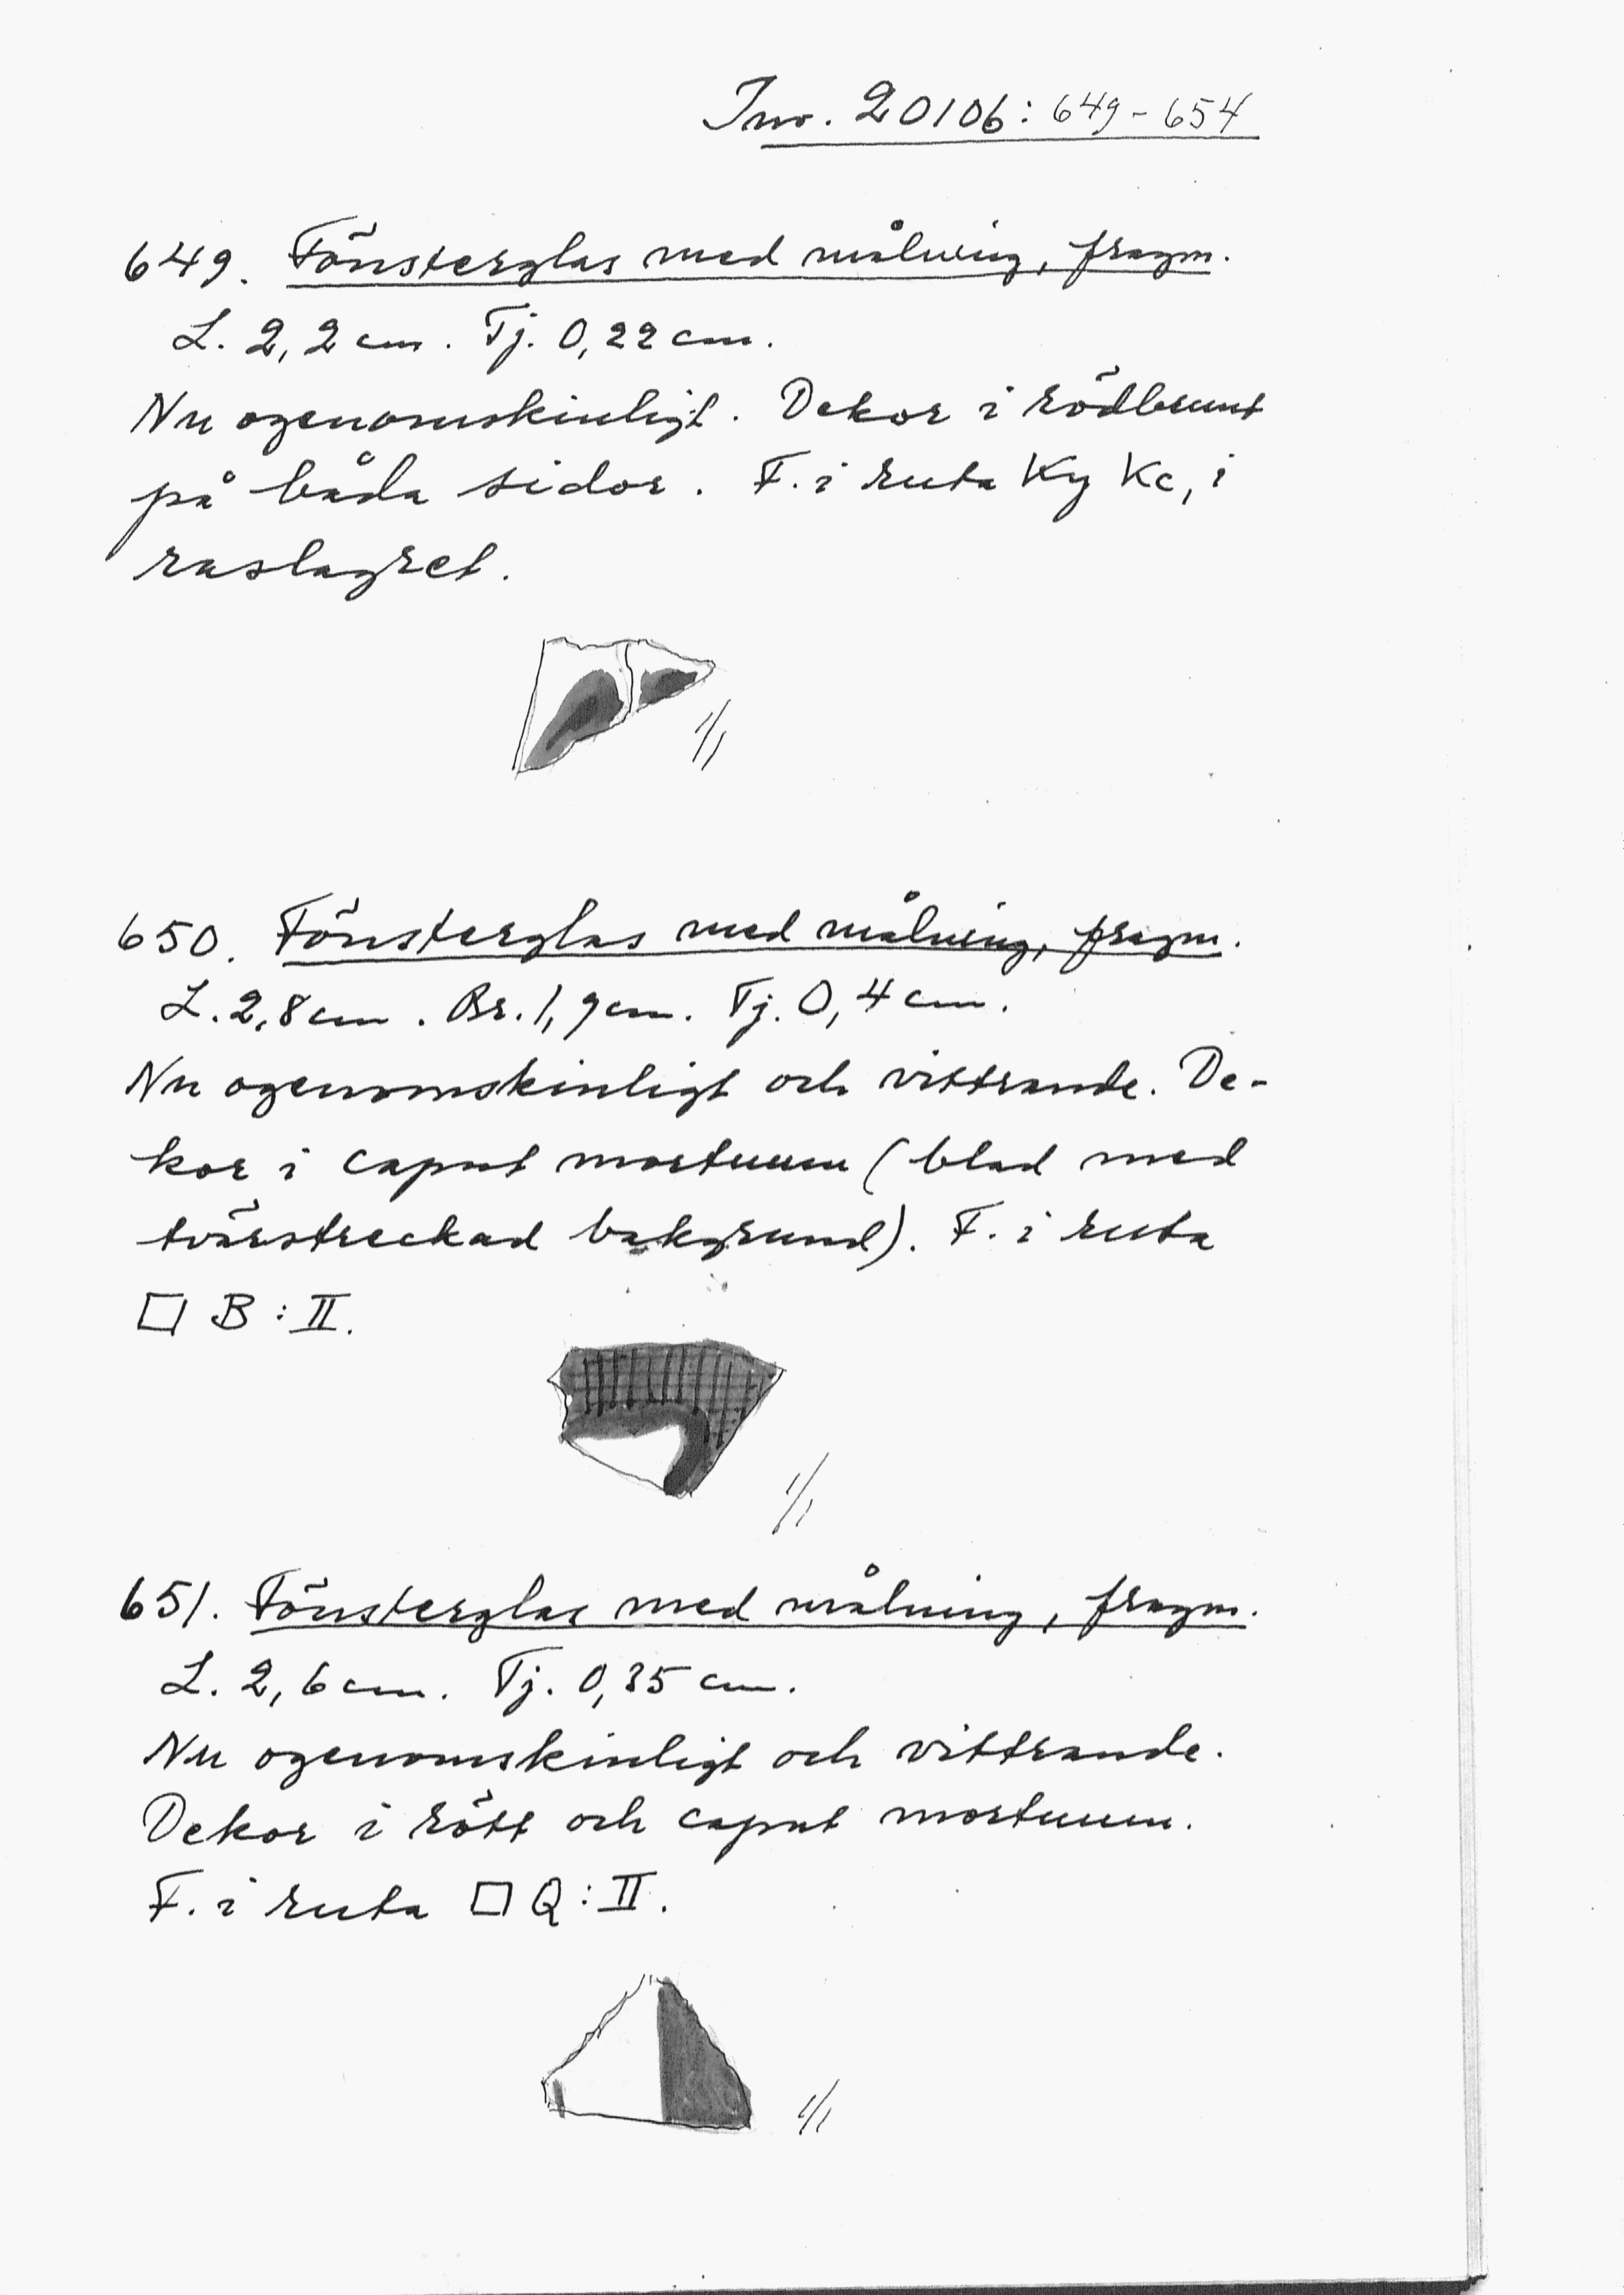 Inv. 20106: 649-654
649. Fönsterglas med målning, fragm.
L. 2,2 cm. Tj. 0,22 cm.
Nu ogenomskinligt. Dekor i rödbrunt
på båda sidor. F. i ruta Ky Kc, i
raslagret.
1/1
650. Fönsterglas med målning, fragm.
L. 2,8 cm. Br. 1,9 cm. Tj. 0,4 cm.
Nu ogenomskinligt och vittrande. De-
kor i caput mortuum (blad med
tvärstreckad bakgrund). F. i ruta
□ B : II.
1/1
651. Fönsterglas med målning, fragm.
L. 2,6 cm. Tj. 0,35 cm.
Nu ogenomskinligt och vittrande.
Dekor i rött och caput mortuum.
F. i ruta □ Q : II.
1/1